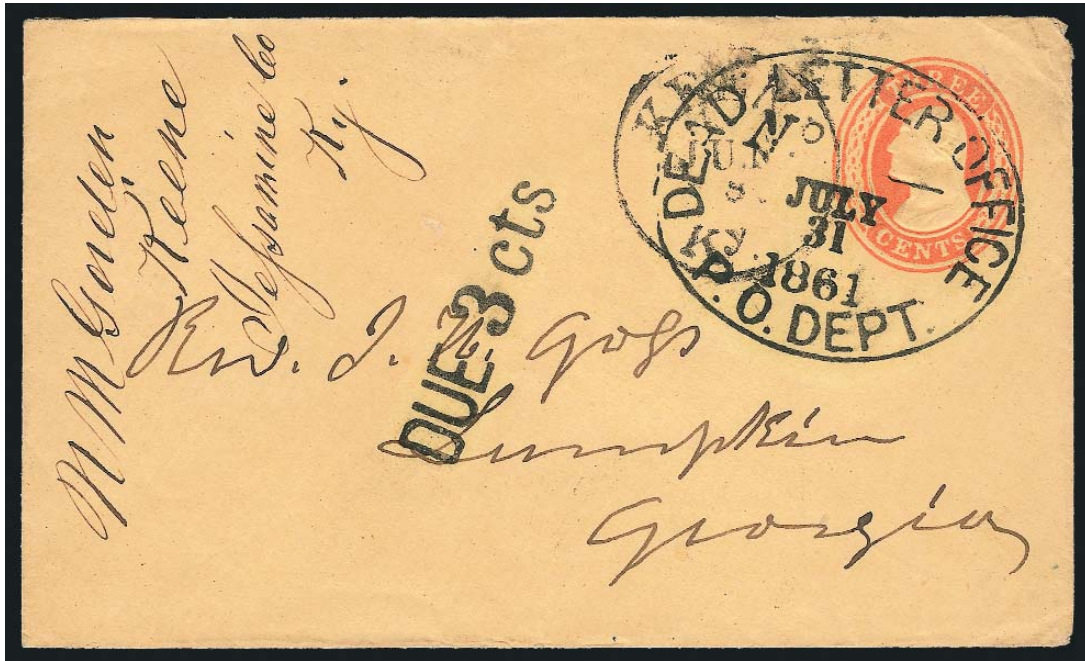 W M Gorden
Keene
Jessamine Co
Ky.
KEENE
JUL
8
Ky.
DEAD LETTER OFFICE
No
JULY
31
1861
P. O. DEPT.
THREE
CENTS
DUE 3 cts
Rev. J. H. Goss
Lumpkin
Georgia